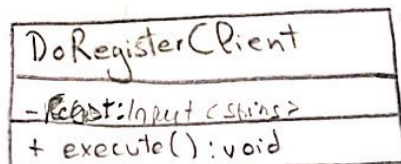 DoRegisterClient
- : Input <String>
+ execute() : void